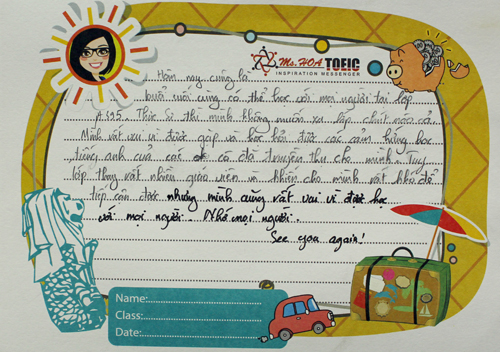 Ms. HOA TOEIC
INSPIRATION MESSENGER
Hôm nay cũng là
buổi cuối cùng có thể học với mọi người tại lớp
Thực sự thì mình không muốn xa lớp chút nào cả
Mình rất vui vì được gặp và học hỏi được các cảm hứng học
tiếng anh của các cô đã truyền thụ cho mình. Tuy
lớp thay rất nhiều giáo viên và khiến cho mình rất khó để
tiếp cận được nhưng mình cũng rất vui vì được học
với mọi người. Nhớ mọi người.
See you again!
Name:
Class:
Date: